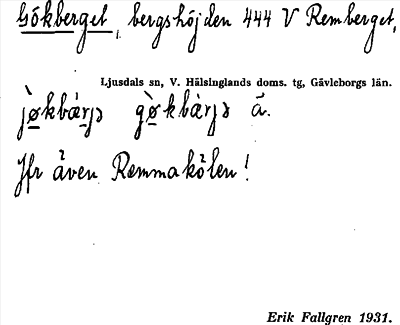 Gökberget, bergshöjden 444 V Remberget,
Ljusdals sn, V. Hälsinglands doms. tg, Gävleborgs län.
jø̀kbær̀jə gø̀kbær̀jə ä.
Jfr även Remmakölen!
Erik Fallgren 1931.